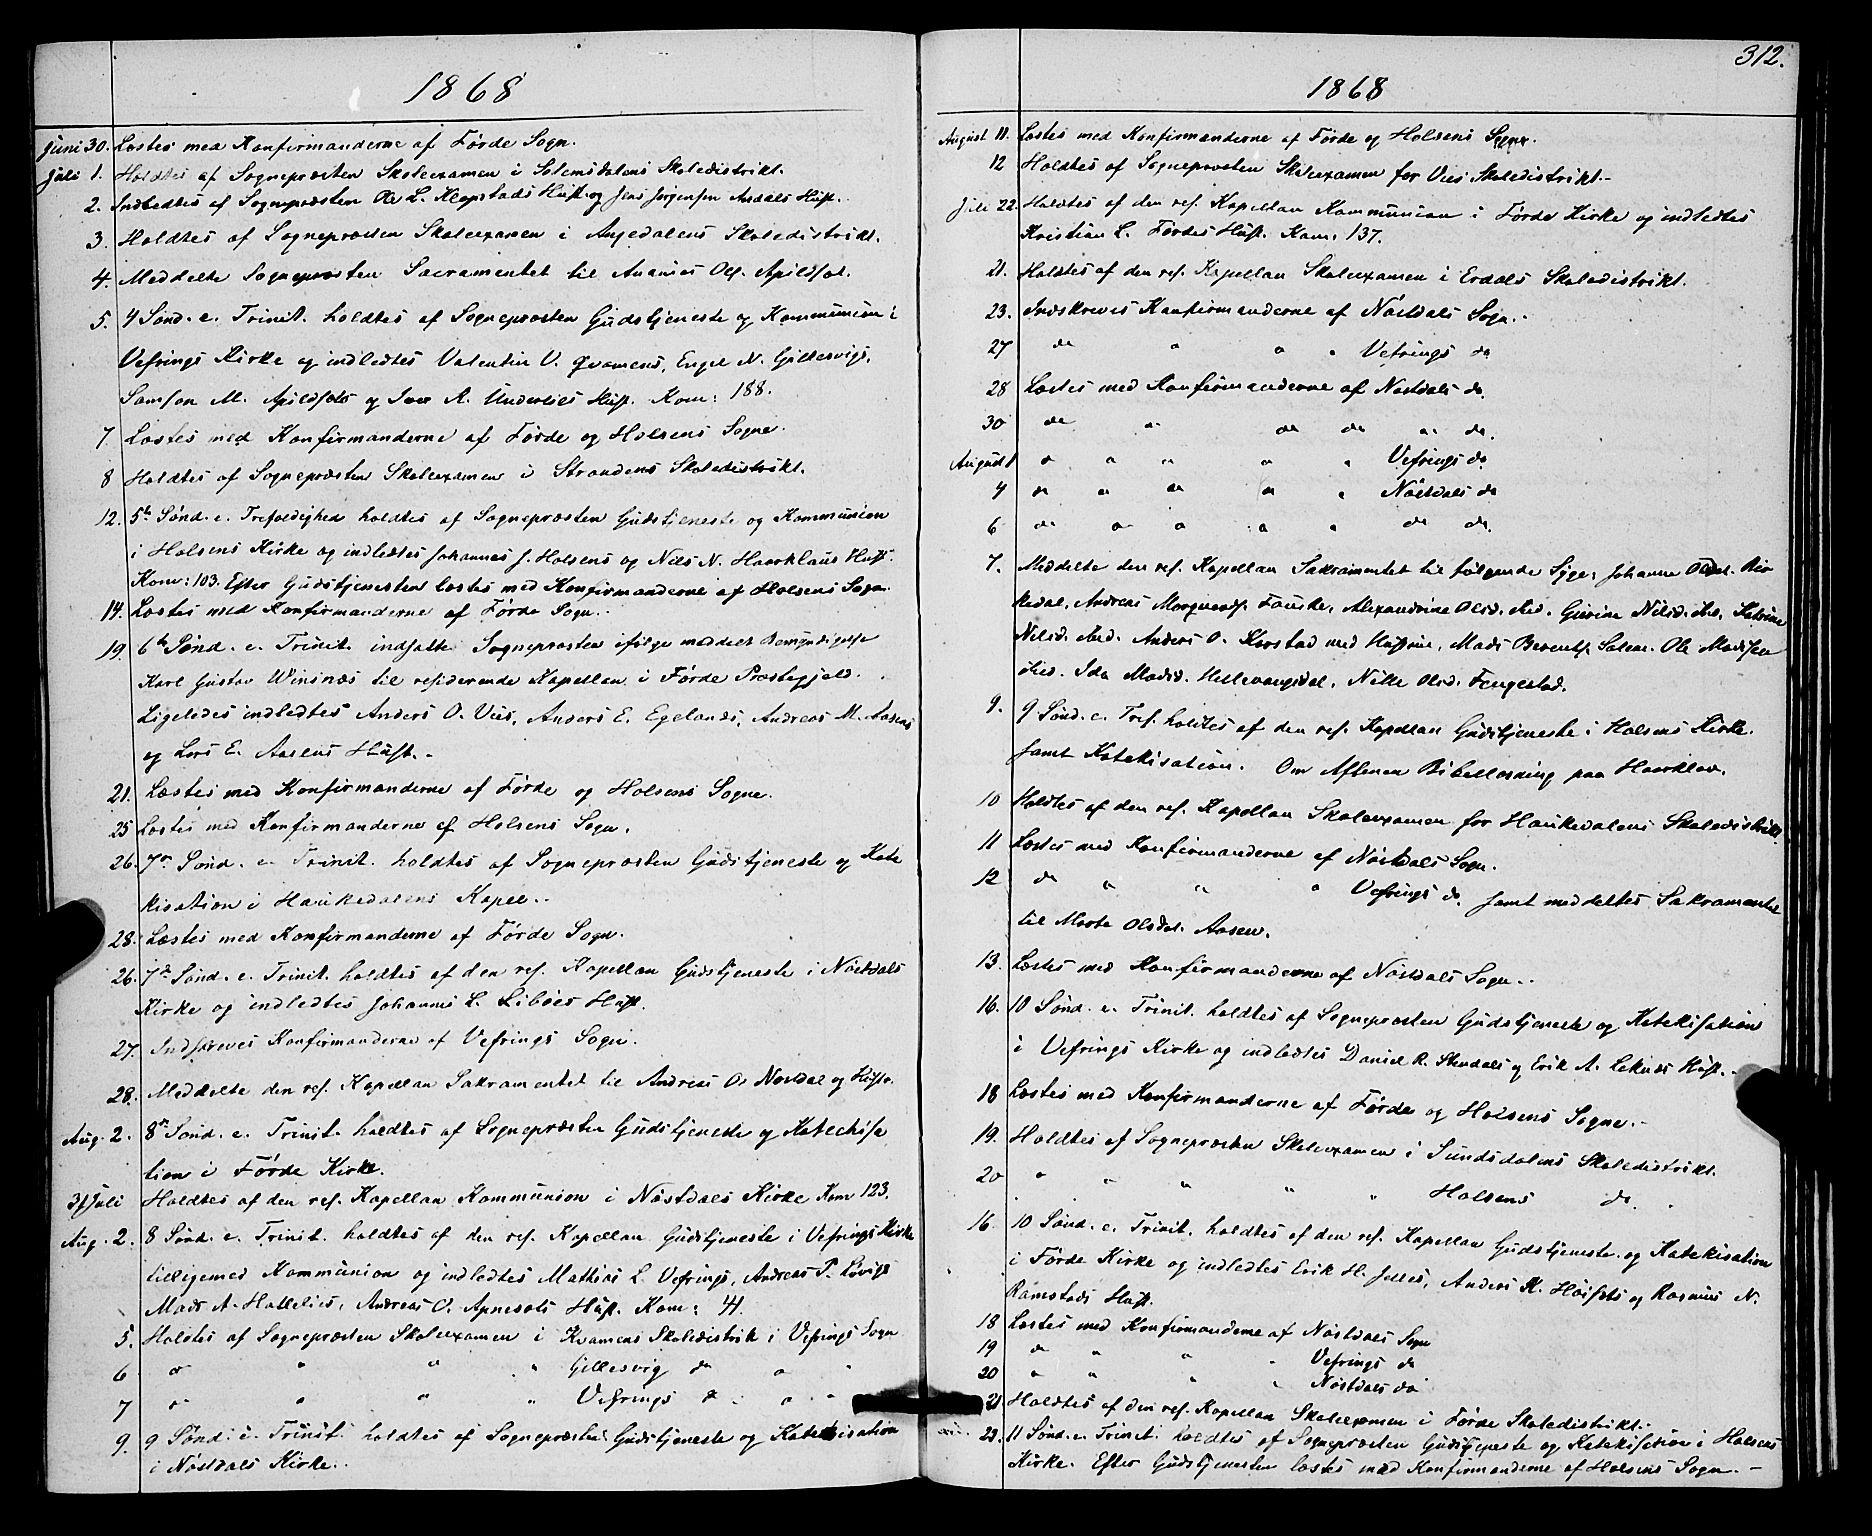 1868
Juni 30. Læstes med Konfirmanderne af Förde Sogn.
Juli 1. Holdtes af Sognepræsten Skoleexamen i Solemsdalens Skoledistrikt.
2. Indledtes af Sognepræsten Ole L. Klopstads Hust. og Jens Jörgensen Aasdals Hust.
3. Holdtes af Sognepræsten Skoleexamen i Angedalens Skoledistrikt.
4. Meddelte Sognepræsten Sacramentet til Ananias Ols. Apildset.
5. 4 Sönd. e. Trinit. holdtes af Sognepræsten Gudstjeneste og Kommunion i
Vefrings Kirke og indledtes Valentin V. Qvamens, Engel N. Gillesvigs,
Samson M. Apildsets og Iver A. Underlies Hust. Kom: 188.
7 Læstes med Konfirmanderne af Förde og Holsens Sogne.
8 Holdtes af Sognepræsten Skoleexamen i Strandens Skoledistrikt.
12. 5te Sönd. e. Trefoldighed holdtes af Sognepræsten Gudstjeneste og Kommunion
i Holsens Kirke og indledtes Johannes J. Holsens og Nils N. Haarklaus Hust.
Kom: 103. Efter Gudstjenesten læstes med Konfirmanderne af Holsens Sogn.
14. Læstes med Konfirmanderne af Förde Sogn.
19. 6te Sönd. e. Trinit. indsatte Sognepræsten ifölge meddelt Bemyndigelse
Karl Gustav Winsnæs til residerende Kapellan i Förde Præstegjeld.
Ligeledes indledtes Anders O. Vies, Anders E. Egelands, Andreas M. Aasens
og Lars E. Aasens Hust.
21. Læstes med Konfirmanderne af Förde og Holsens Sogne.
25 Læstes med Konfirmanderne af Holsens Sogn.
26. 7de Sönd. e. Trinit. holdtes af Sognepræsten Gudstjeneste og Kate
kisation i Haukedalens Kapel.
28. Læstes med Konfirmanderne af Förde Sogn.
26. 7de Sönd. e. Trinit. holdtes af den res. Kapellan Gudstjeneste i Nöstdals
Kirke og indledtes Johannes L. Liböes Hust.
27. Indskreves Konfirmanderne af Vefrings Sogn.
28. Meddelte den res. Kapellan Sakramentet til Andreas O. Nöstdal og Hustr.
Aug. 2. 8de Sönd. e. Trinit. holdtes af Sognepræsten Gudstjeneste og Katechisa
tion i Förde Kirke.
31 Juli Holdtes af den res. Kapellan Kommunion i Nöstdals Kirke Kom 123.
Aug. 2. 8 Sönd. e. Trinit. holdtes af den res. Kapellan Gudstjeneste i Vefrings Kirke
tilligemed Kommunion og indledtes Mathias L. Vefrings, Andreas P. Lövigs
Mads A. Hallelies, Andreas O. Apnesets Hust. Kom: 41.
5. Holdtes af Sognepræsten Skoleexamen i Kvamens Skoledistrik i Vefrings Sogn
6 do " " " Gillesvig do " "
7 do " " " Vefrings do " "
9. 9 Sönd. e. Trinit. holdtes af Sognepræsten Gudstjeneste og Katekisation
i Nöstdals Kirke.
312.
1868
August 11. Læstes med Konfirmanderne af Förde og Holsens Sogne.
12 Holdtes af Sognepræsten Skoleexamen for Vies Skoledistrikt.
Juli 22. Holdtes af den res. Kapellan Kommunion i Förde Kirke og indledtes
Kristian L. Fördes Hust. Kom: 137.
21. Holdtes af den res. Kapellan Skoleexamen i Erdals Skoledistrikt.
23. Indskreves Konfirmanderne af Nöstdals Sogn.
27 do " " " Vefrings do
28 Læstes med Konfirmanderne af Nöstdals do
30 do " do do " do.
August 1 " " " " " Vefrings do
4 do " " " " Nöstdals do
6 do " " " " do do.
7. Meddelte den res. Kapellan Sakramentet til fölgende Syge, Johanne Olsd.
Andreas Fauske, Alexandrine Olsd. Gurine Nilsd.
Nilsd. Anders O. med Hustru, Mads Berents. Solem. Ole Madsen
Ida Madsd. Hellevangsdal, Nille Olsd. Fengestad.
9. 9 Sönd. e. Tref. holdtes af den res. Kapellan Gudstjeneste i Holsens Kirke.
samt Katekisation. Om Aftenen Bibellæsning paa Haarklau.
10 Holdtes af den res. Kapellan Skoleexamen for Haukedalens Skoledistrikt.
11 Læstes med Konfirmanderne af Nöstdals Sogn.
12 do " " " Vefrings do. samt meddeltes Sakramentet
til Marta Olsdat. Aasen.
13. Læstes med Konfirmanderne af Nöstdals Sogn.
16. 10 Sönd. e. Trinit. holdtes af Sognepræsten Gudstjeneste og Katekisation
i Vefrings Kirke og indledtes Daniel R. Stendals og Erik A. Hust.
18 Læstes med Konfirmanderne af Förde og Holsens Sogne.
19. Holdtes af Sognepræsten Skoleexamen i Sundsdalens Skoledistrikt.
20 " " " " " Holsens do.
16. 10 Sönd. e. Trinit. holdtes af den res. Kapellan Gudstjeneste og Katekisation
i Förde Kirke og indledtes Erik H. Anders K. og Rasmus N.
Ramstads Hust.
18 Læstes med Konfirmanderne af Nöstdals Sogn
19 do " " " Vefrings do
20 " " " " Nöstdals do
21 Holdtes af den res. Kapellan Skoleexamen i Förde Skoledistrikt.
23. 11 Sönd. e. Trinit. holdtes af Sognepræsten Gudstjeneste og Katekisation i Holsens
Kirke. Efter Gudstjenesten læstes med Konfirmanderne af Holsens Sogn.